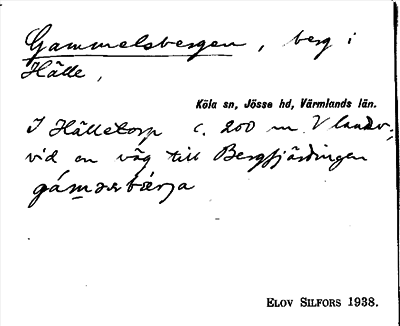 Gammelsbergen, berg i
Hälle,
Köla sn, Jösse hd, Värmlands län.
I Hälletorp c. 200 m V landsv.
vid en väg till Bergfjärdingen
Elov Silfors 1938.